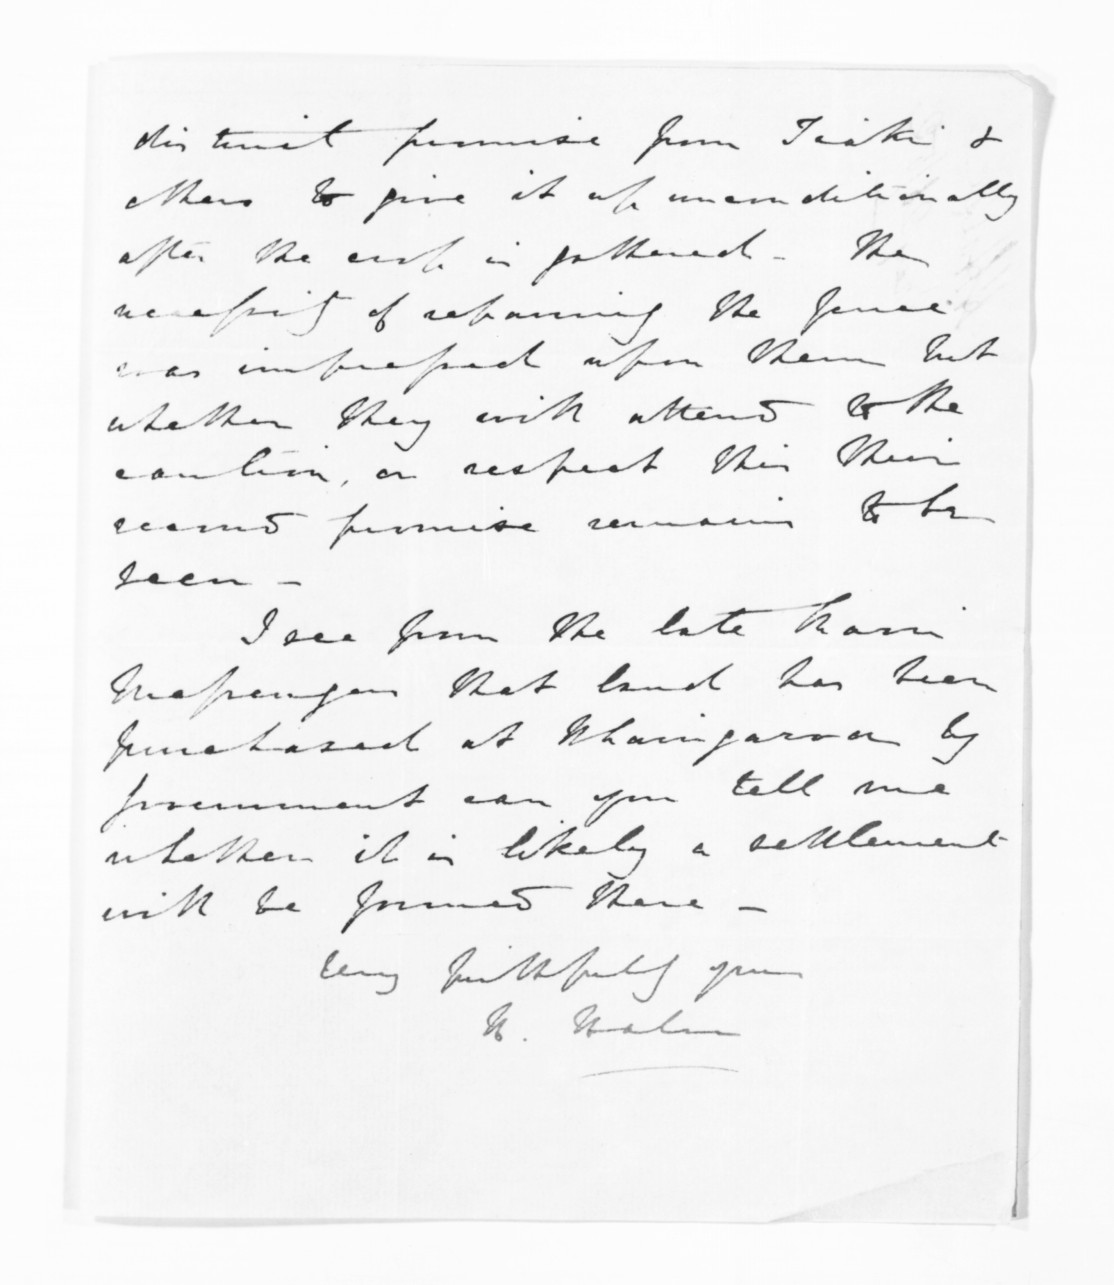 distinct promise from Tiaki &
others to give it up unconditionally
after the crop is gathered - The
necessity of repairing the fence
was impressed upon them but
whether they will attend to the
caution, or respect this their
second promise remains to be
seen -
I see from the late Maori
Messenger that land has been
purchased at Whaingaroa by
government can you tell me
whether it is likely a settlement
will be formed there -
Very faithfully yours
W. Halse